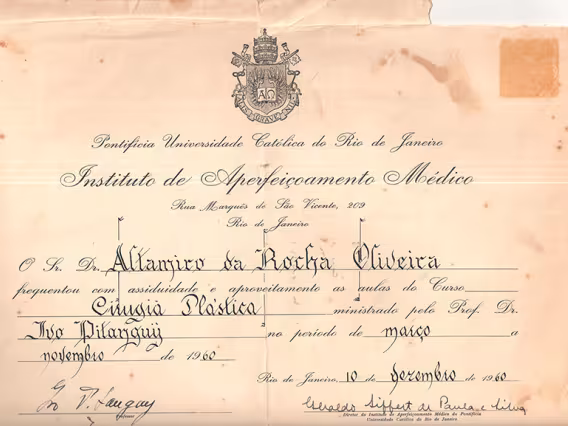 Pontifícia Universidade Católica do Rio de Janeiro
Instituto de Aperfeiçoamento Médico
Rua Marquês de São Vicente, 209
Rio de Janeiro
O Sr. Dr. Altamiro da Rocha Oliveira
frequentou com assiduidade e aproveitamento as aulas do Curso
Cirurgia Plástica ministrado pelo Prof. Dr.
Ivo Pitanguy no período de março a
novembro de 1960
Rio de Janeiro, 10 de dezembro de 1960
Ivo Pitanguy Geraldo Siffert de Paula e Silva
Professor Diretor do Instituto de Aperfeiçoamento Médico da Pontifícia
Universidade Católica do Rio de Janeiro